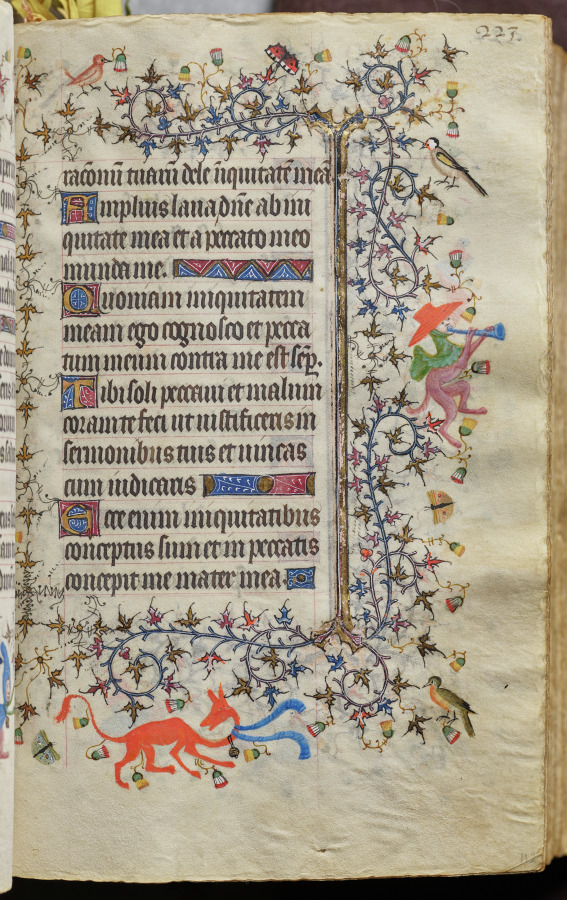 223.
racionũ tuarũ dele iniquitatẽ mea
Amplius laua dñe ab ini
quitate mea et a peccato meo
munda me.
Quoniam iniquitatem
meam ego cognosco et pecca
tum meum contra me est sep̱.
Tibi soli peccaui et malum
coram te feci ut iustificeris in
sermonibus tuis et uincas
cum iudicaris
Ecce enim iniquitatibus
conceptus sum et in peccatis
concepit me mater mea